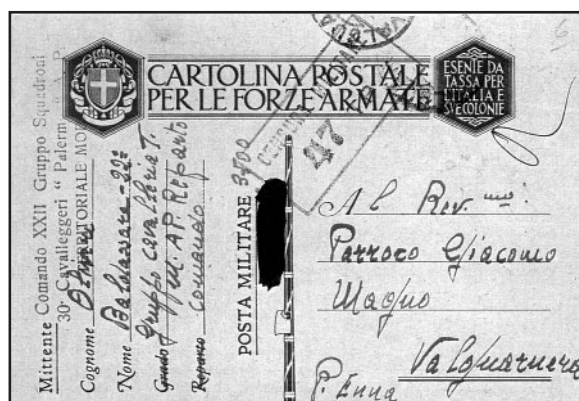 CARTOLINA POSTALE
PER LE FORZE ARMATE
ESENTE DA
TASSA PER
L'ITALIA E
SUE COLONIE
VALGUA
47
Mittente Comando XXII Gruppo Squadroni
30° Cavalleggeri " Palerm
TERRITORIALE MO
Cognome
Nome Baldassare - 22°
Grado Gruppo Cavalleria T.
M. AP. Reparto
Reparto Comando
POSTA MILITARE 3500
Al Rev.mo
Parroco Giacomo
Magno
Valguarnera
P. Enna